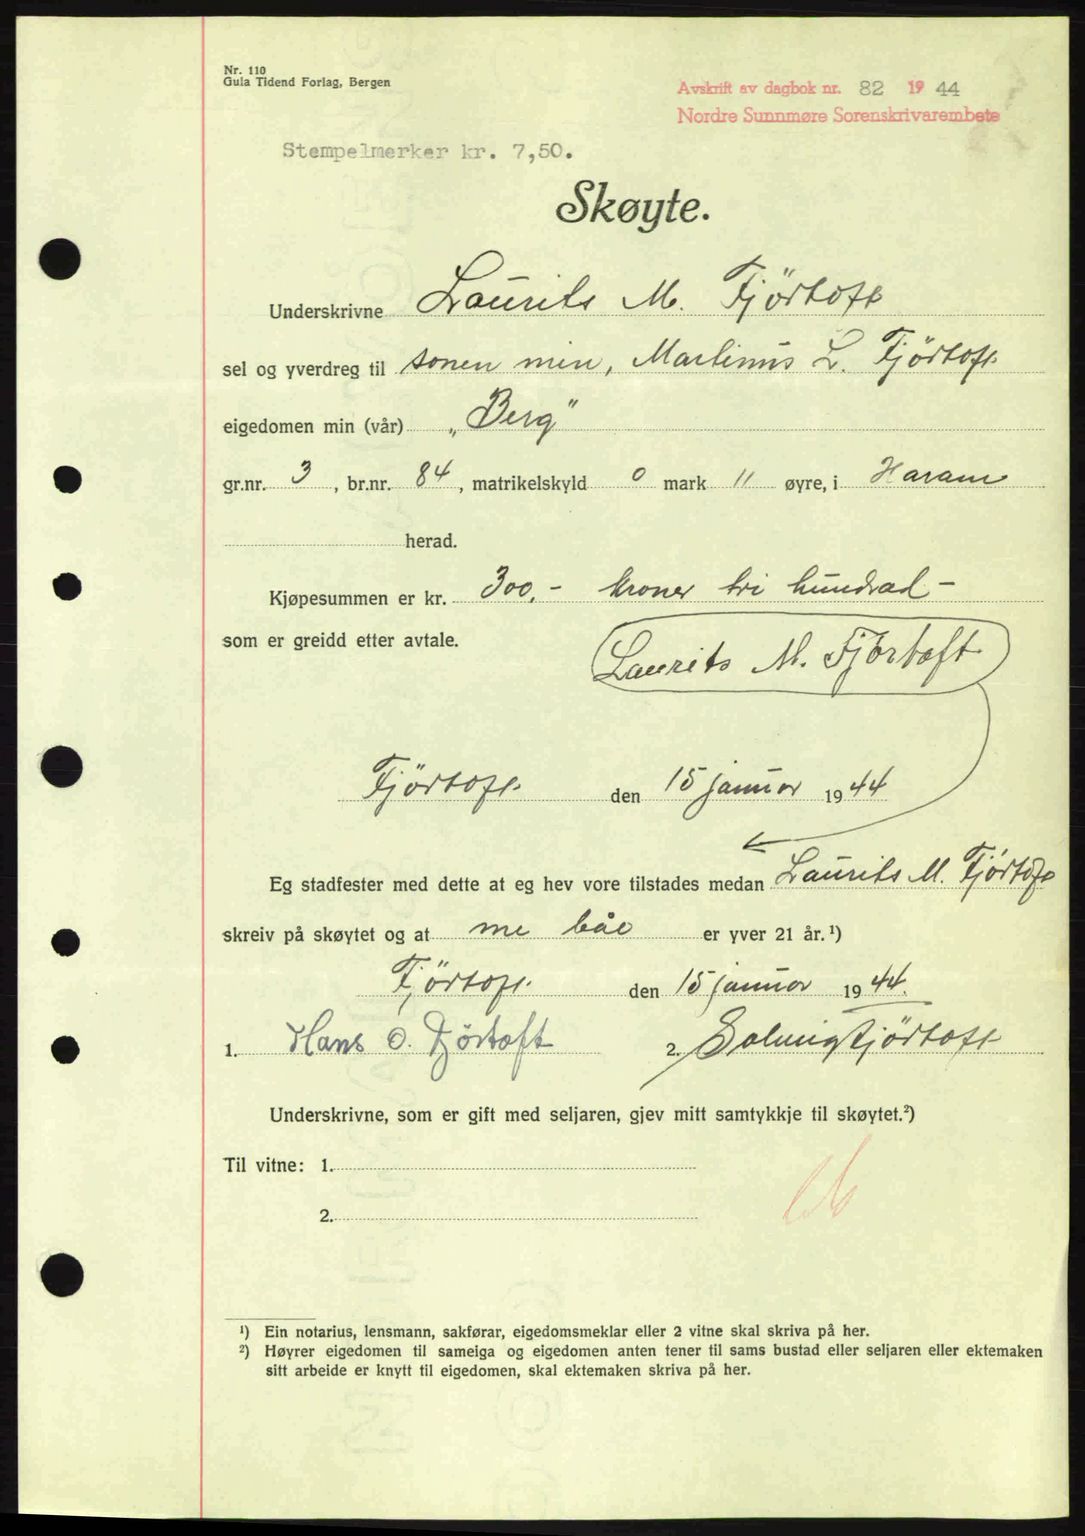 Nr. 110
Gula Tidend Forlag, Bergen
Avskrift av dagbok nr. 82 1944
Nordre Sunnmøre Sorenskrivarembete
Stempelmerker kr. 7,50.
Skøyte.
Underskrivne Laurits M. Fjörtoft
sel og yverdreg til sonen min, Martinus L. Fjörtoft
eigedomen min (vår) „Berg"
gr.nr. 3, br.nr. 84, matrikelskyld 0 mark 11 øyre, i Haram
herad.
Kjøpesummen er kr. 300,- kroner tri hundrad -
som er greidd etter avtale.
Laurits M. Fjörtoft
Fjörtoft den 15 januar 1944
Eg stadfester med dette at eg hev vore tilstades medan Laurits M. Fjörtoft
skreiv på skøytet og at me båe er yver 21 år.¹)
Fjörtoft den 15 januar 1944.
1. Hans O. Fjörtoft 2. Solveig Fjörtoft
Underskrivne, som er gift med seljaren, gjev mitt samtykkje til skøytet.²)
Til vitne: 1.
2.
¹) Ein notarius, lensmann, sakførar, eigedomsmeklar eller 2 vitne skal skriva på her.
²) Høyrer eigedomen til sameiga og eigedomen anten tener til sams bustad eller seljaren eller ektemaken
sitt arbeide er knytt til eigedomen, skal ektemaken skriva på her.